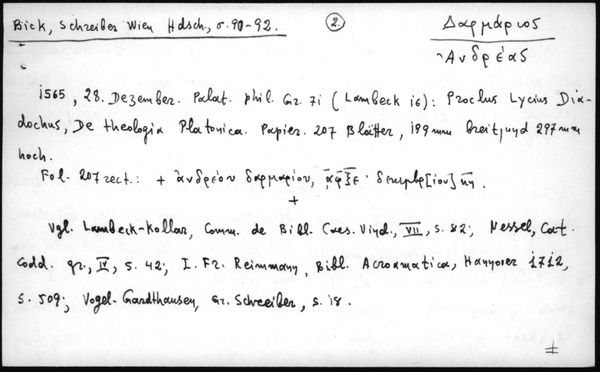 Bick, Schreiber Wien Hdsch., σ. 90-92.
2.
Δαρμάριος
Ἀνδρέας
1565, 28. Dezember. Palat. phil. Gr. 71 (Lambeck 16): Proclus Lycius Dia-
dochus, De theologia Platonica. Papier. 207 Blätter, 199 mm breit, und 297 mm
hoch.
Fol. 207 rect.: + ἀνδρέου δαρμαρίου, ͵αφξε · δεκεμβρ[ίου] κη.
+
Vgl. Lambeck-Kollar, Comm. de Bibl. Caes. Vind., VII, S. 82; Nessel, Cat.
Codd. gr., IV, S. 42; I. Fr. Reimmann, Bibl. Acroamatica, Hannover 1712,
S. 509; Vogel-Gardthausen, Gr. Schreiber, S. 18.